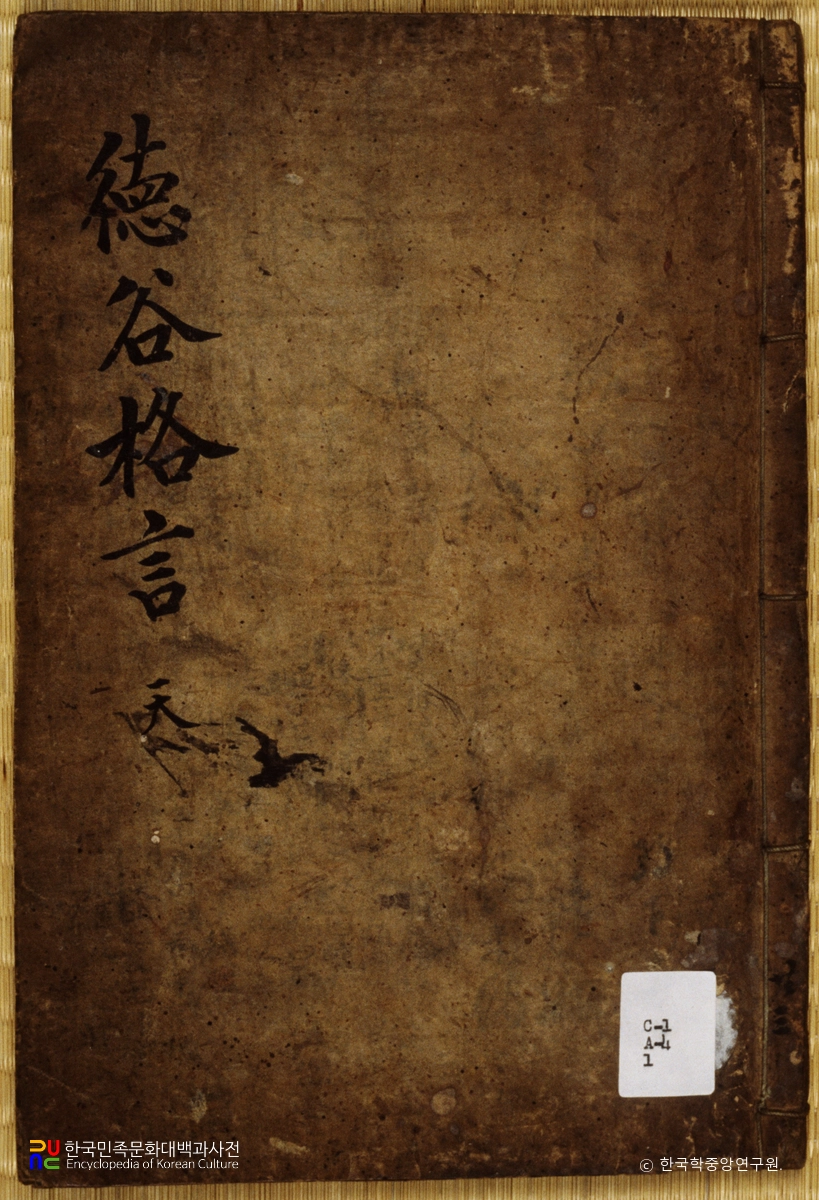 德谷格言 天
C-1
A-4
1
한국민족문화대백과사전
Encyclopedia of Korean Culture
© 한국학중앙연구원